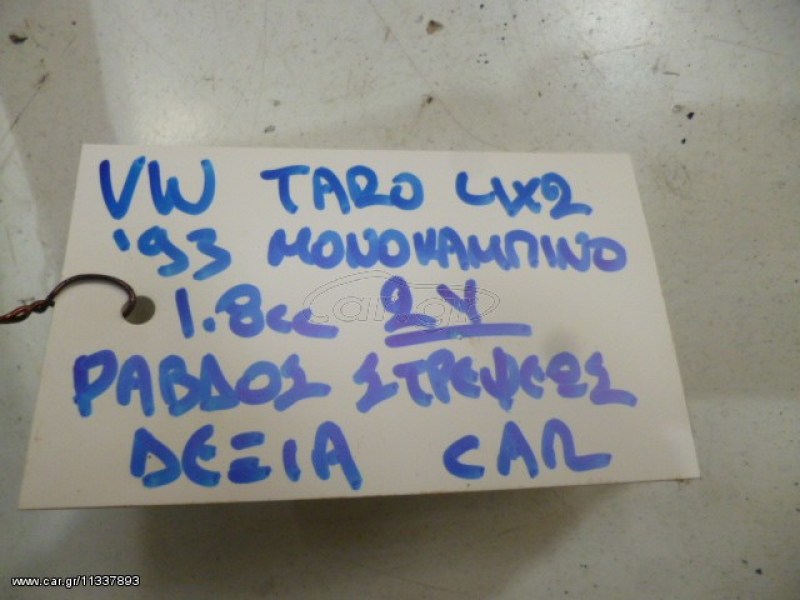 VW TARO 4X2
'93 ΜΟΝΟΚΑΜΠΙΝΟ
1.8cc 2Y
ΡΑΒΔΟΣ ΣΤΡΕΨΕΩΣ
ΔΕΞΙΑ CAR
www.car.gr/11337893